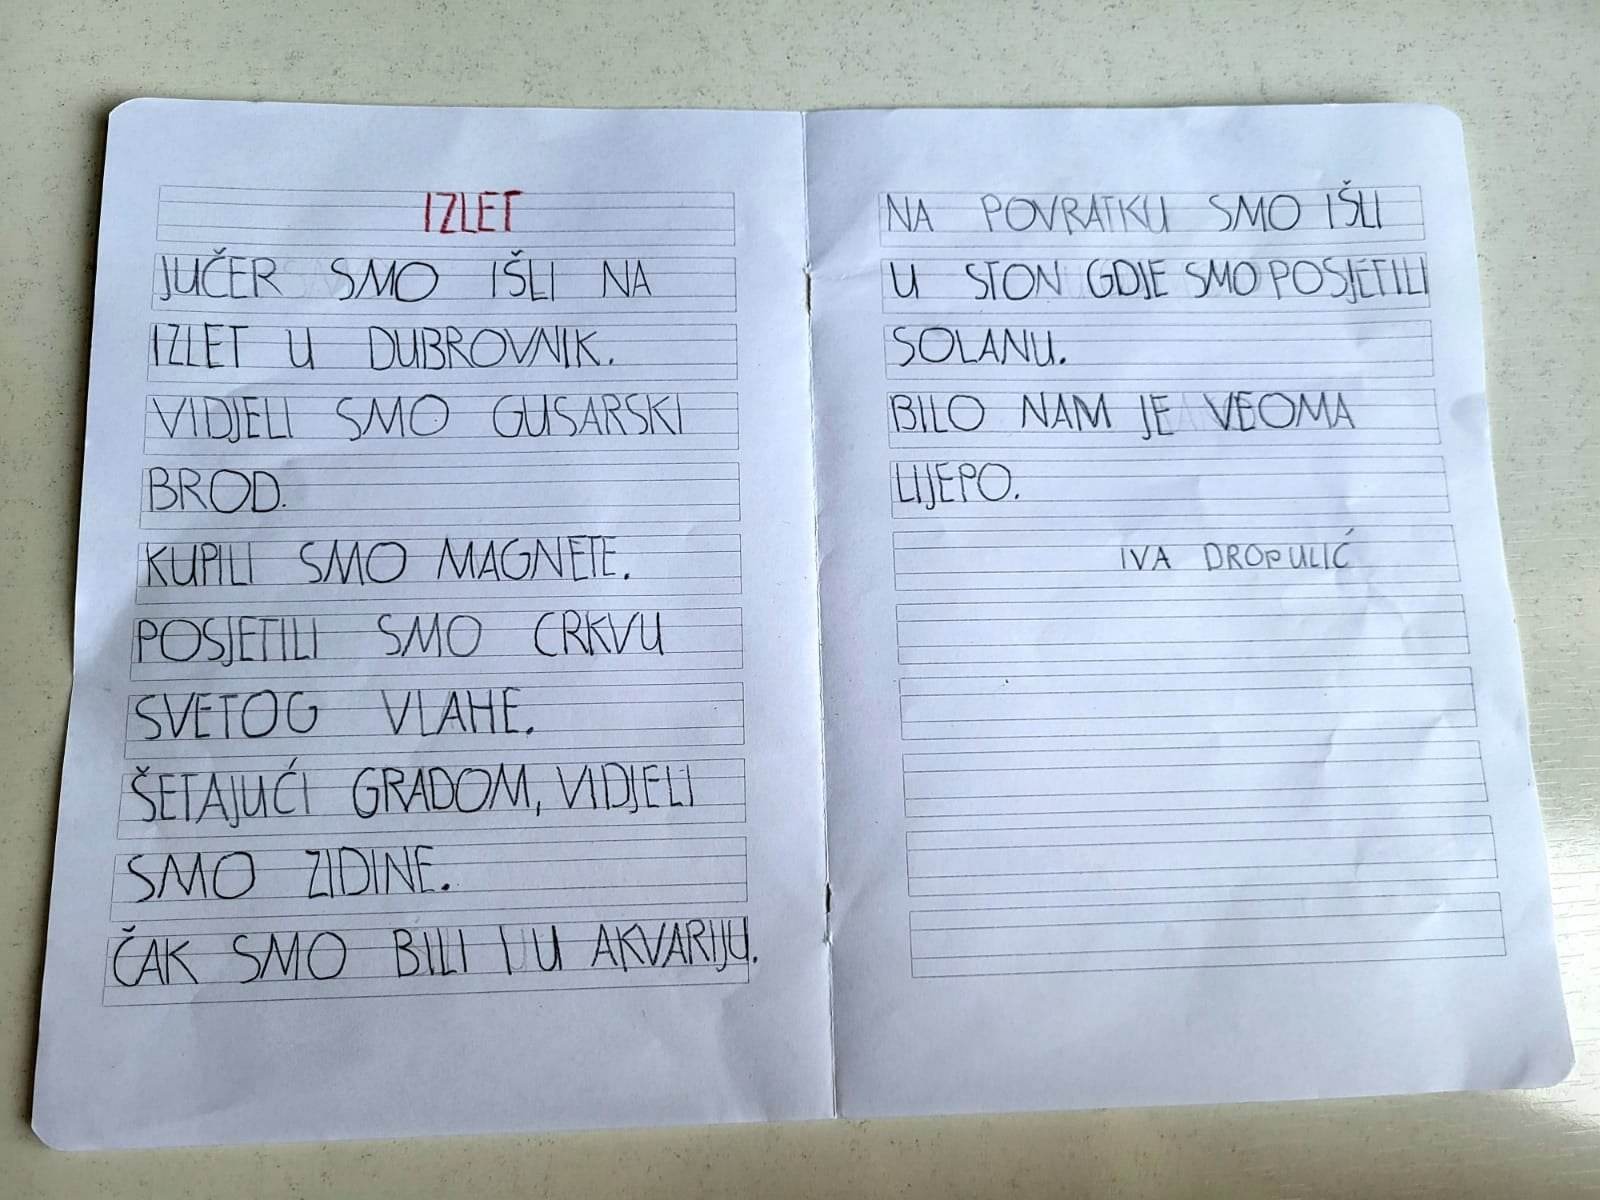 IZLET
JUČER SMO IŠLI NA
IZLET U DUBROVNIK.
VIDJELI SMO GUSARSKI
BROD.
KUPILI SMO MAGNETE.
POSJETILI SMO CRKVU
SVETOG VLAHE.
ŠETAJUĆI GRADOM, VIDJELI
SMO ZIDINE.
ČAK SMO BILI I U AKVARIJU.
NA POVRATKU SMO IŠLI
U STON GDJE SMO POSJETILI
SOLANU.
BILO NAM JE VEOMA
LIJEPO.
IVA DROPULIĆ